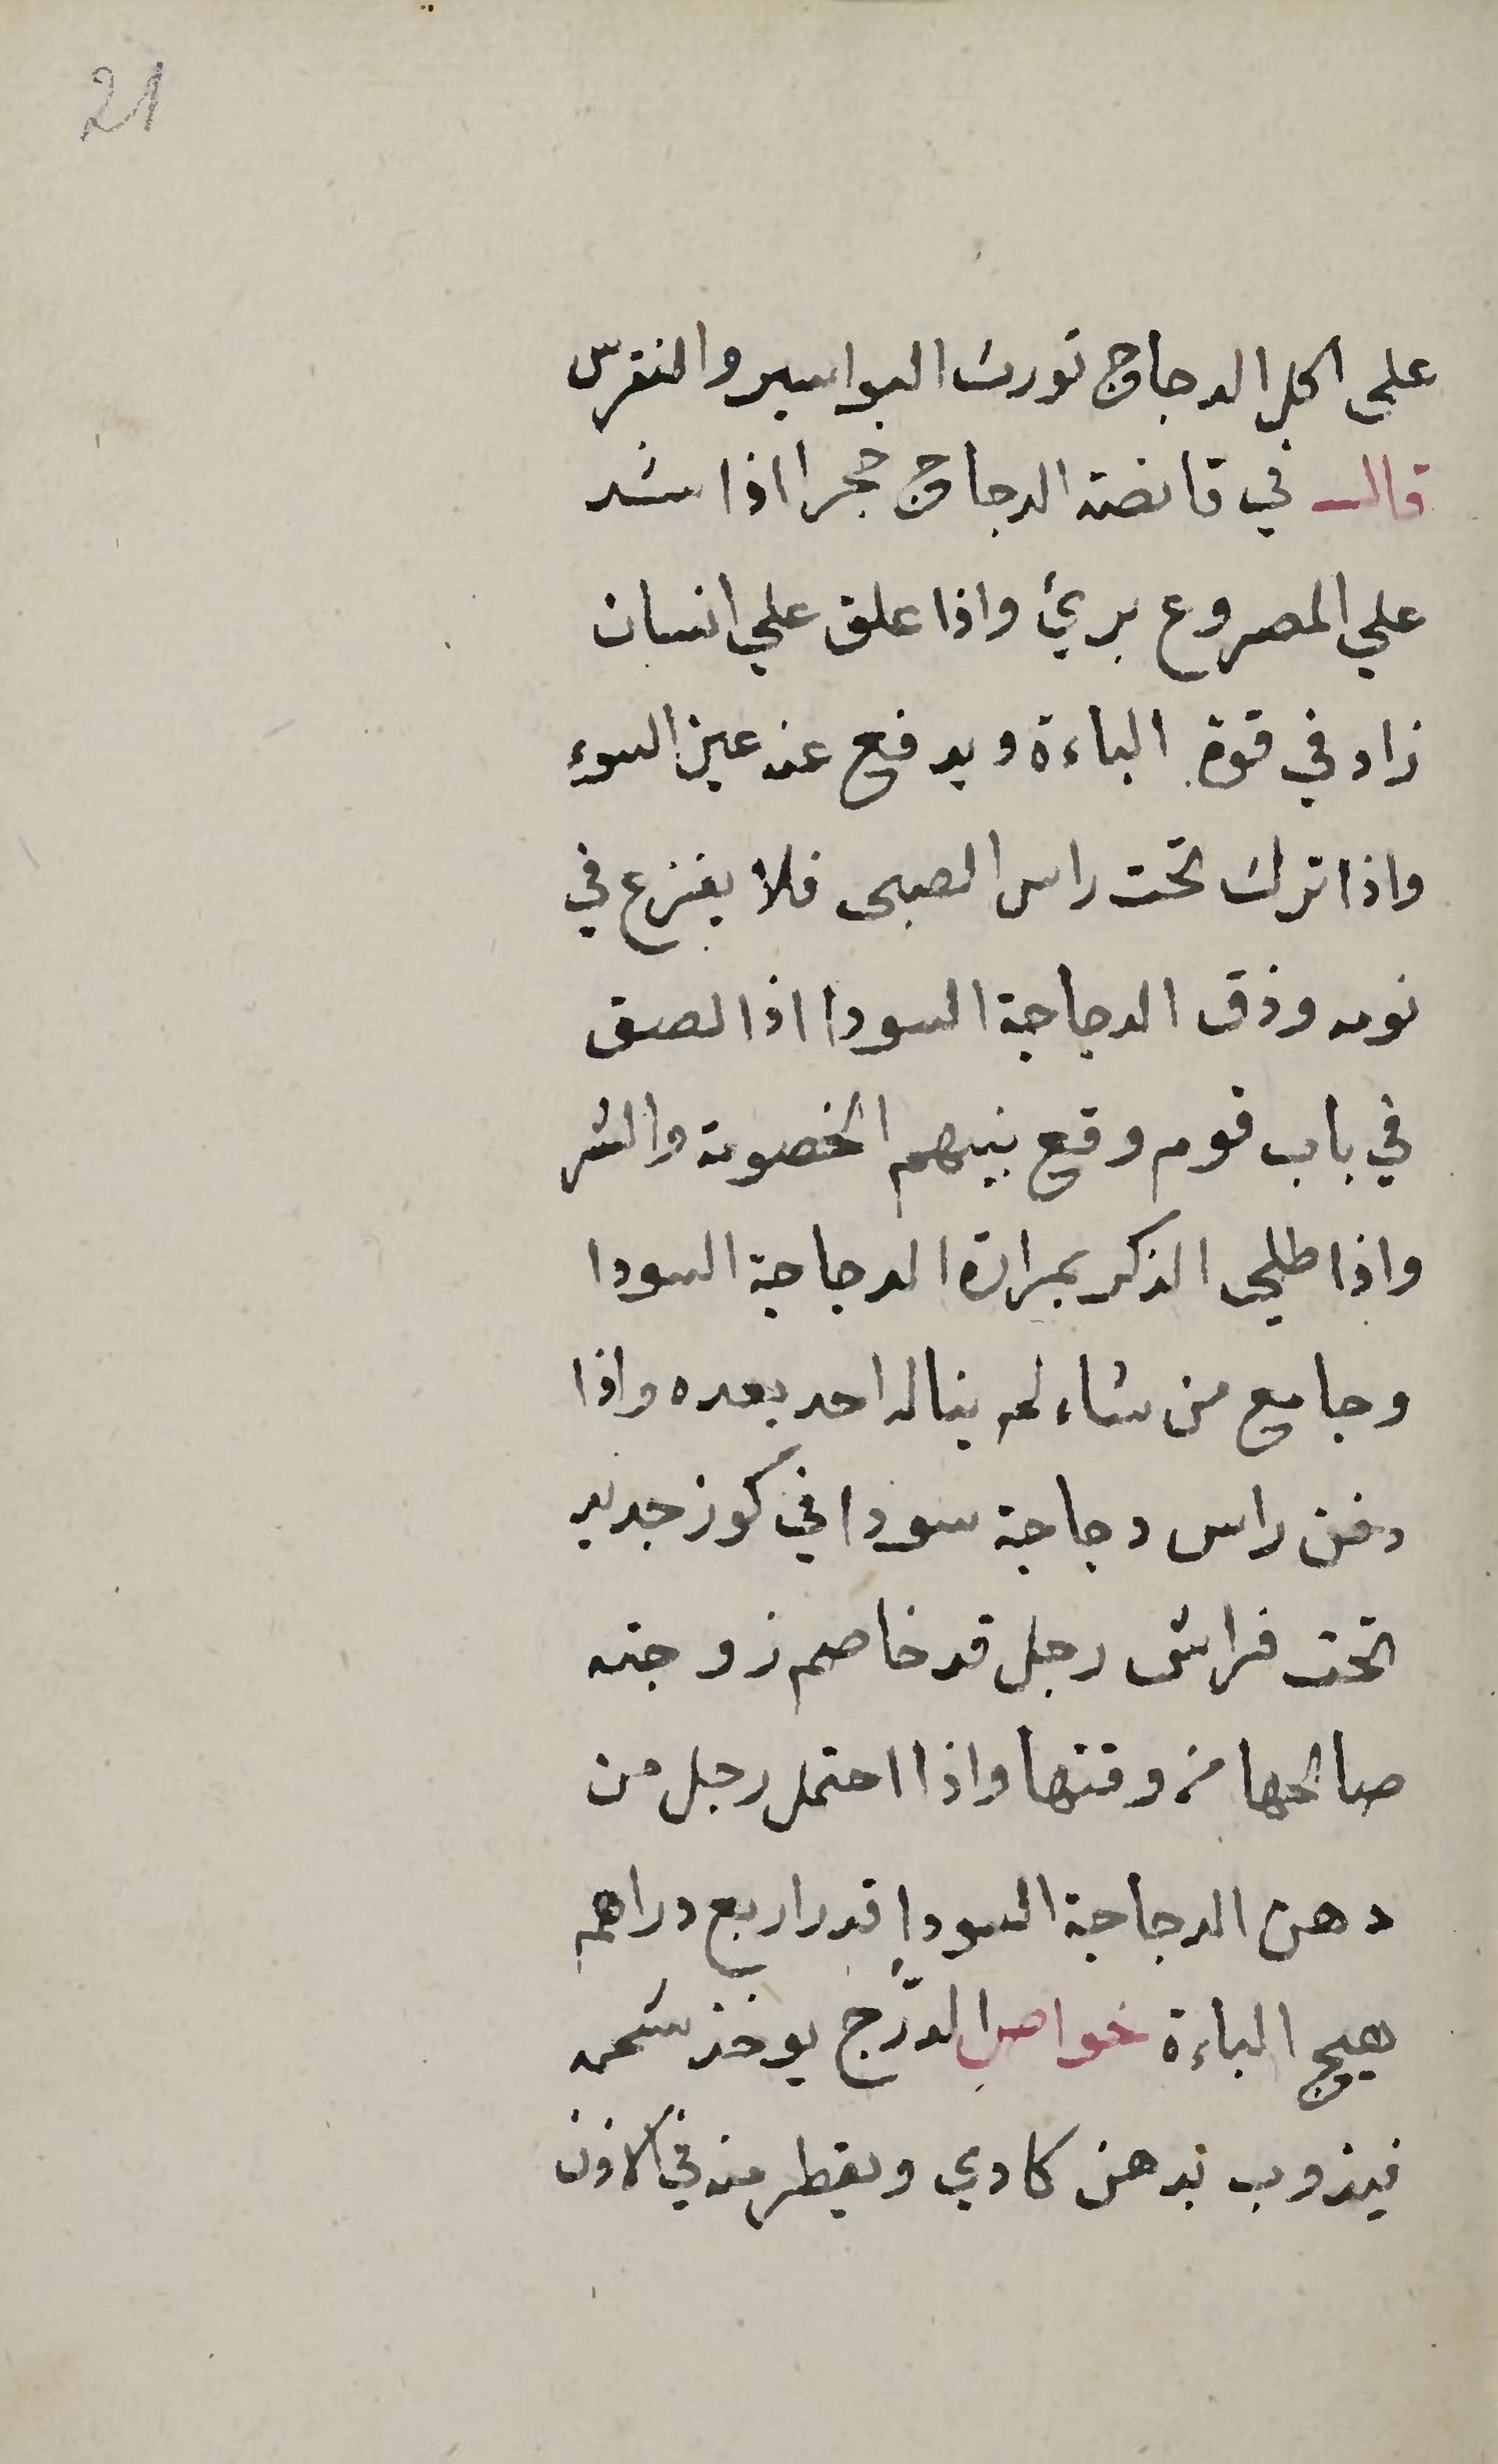 21
على اكل الدجاج تورث البواسير والنقرس
قال في قانصة الدجاج حجرا اذا شد
علي المصروع برئ واذا علق علي انسان
زاد في قوة الباءة ويدفع عنه عين السوء
واذا ترك تحت راس الصبى فلا يفزع في
نومه وذق الدجاجة السودا اذا لصق
في باب قوم وقع بينهم الخصومة والشر
واذا طلى الذكر بمرارة الدجاجة السودا
وجامع من شاء لم يناله احد بعده واذا
دفن راس دجاجة سودا في كوز جديد
تحت فراش رجل قد خاصم زوجته
صالحها من وقتها واذا احتمل رجل من
دهن الدجاجة السودا قدر اربع دراهم
هيج الباءة خواص الدرّج يوخذ شحمه
فيذوب بدهن كادي ويقطر منه في الاذن